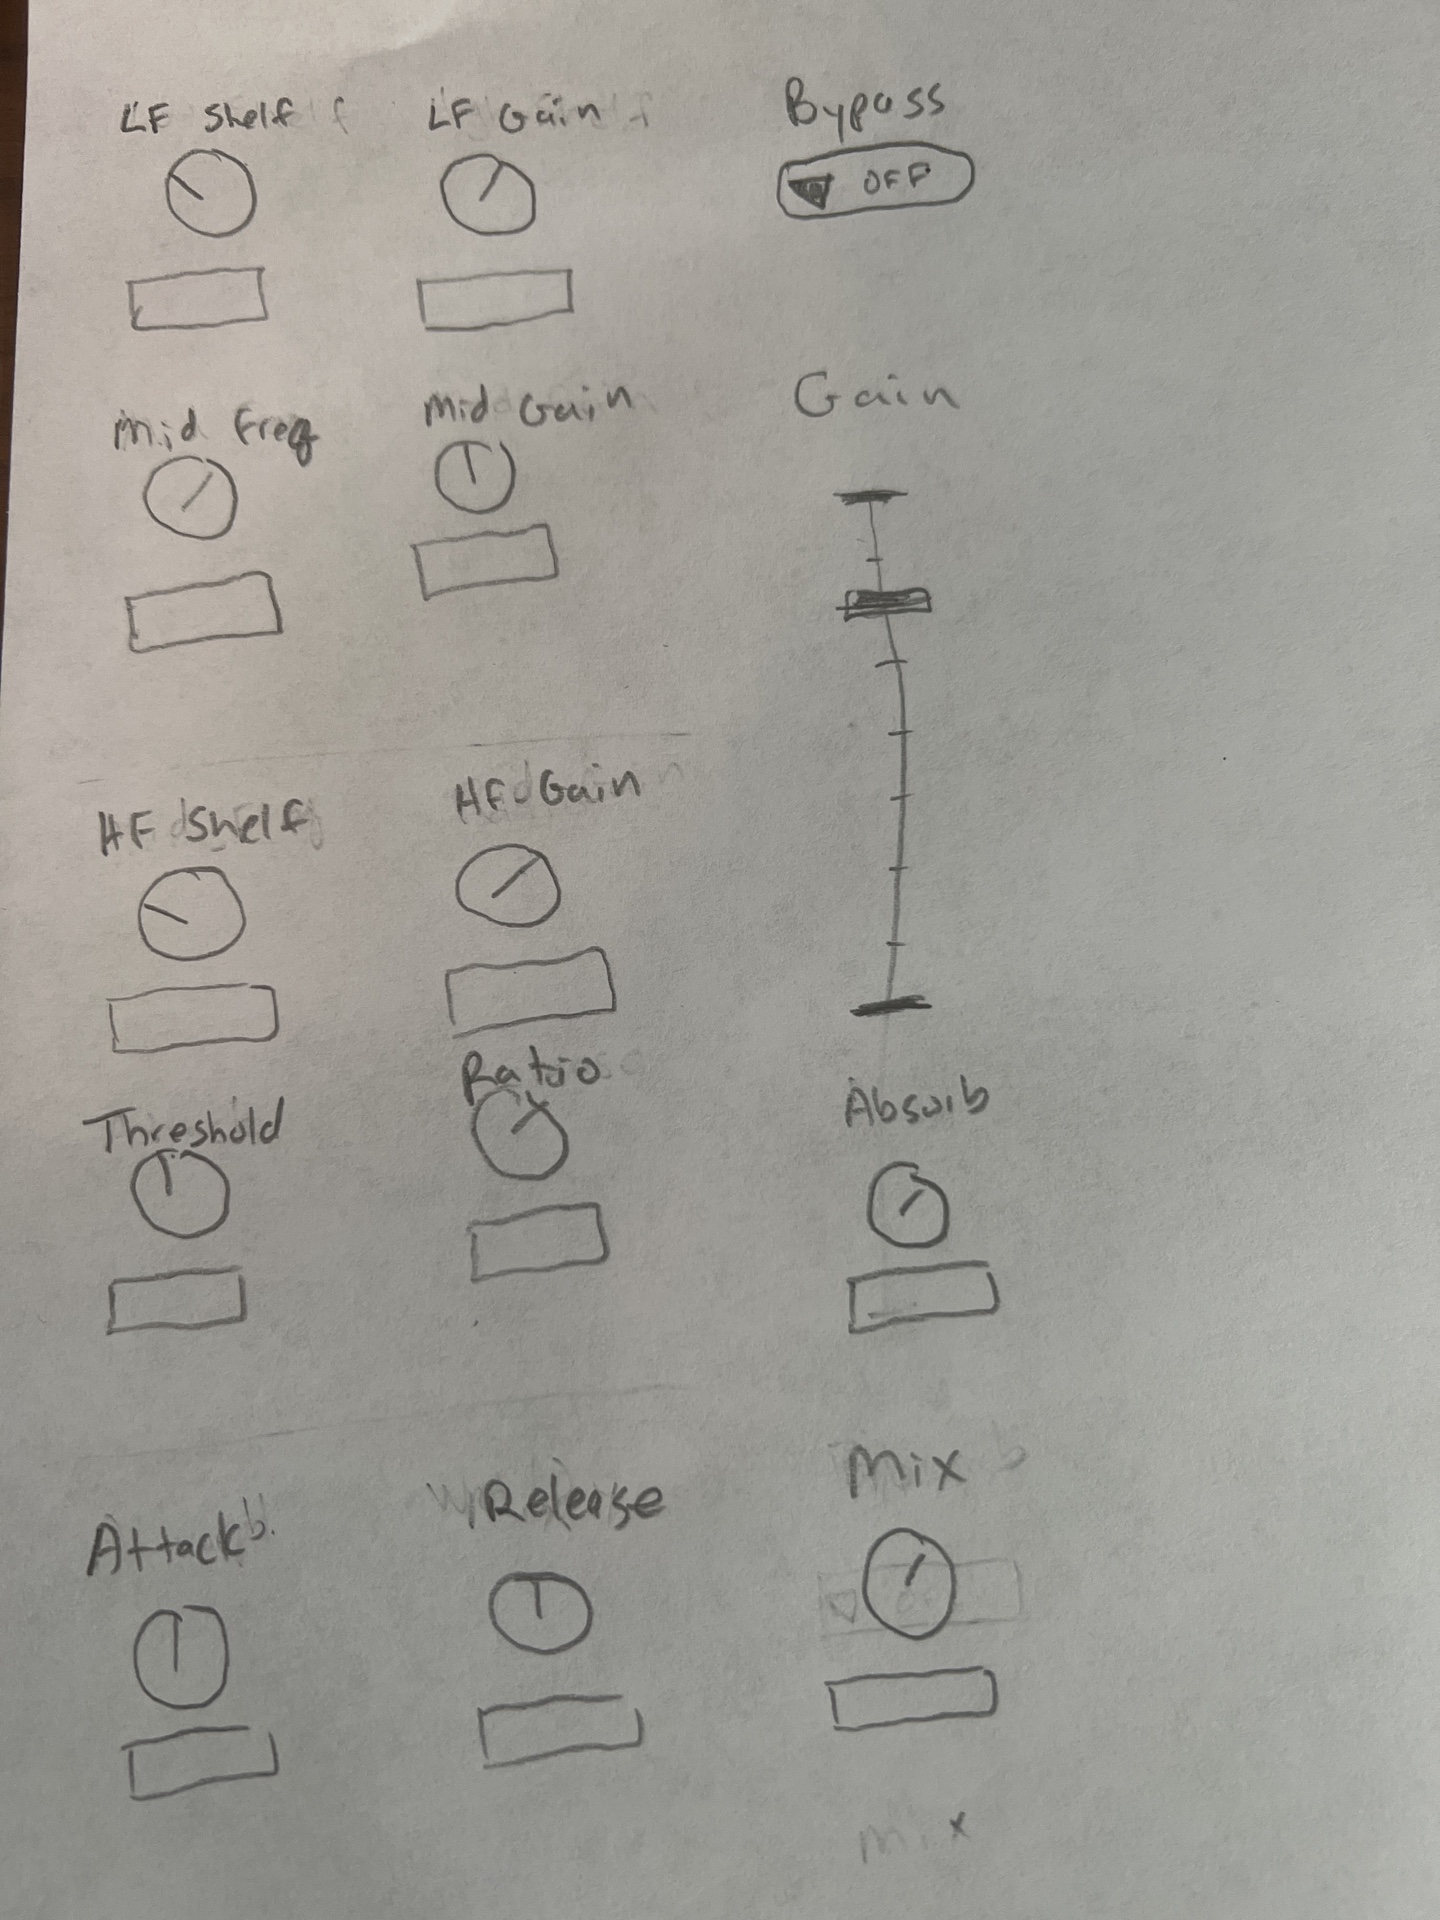 LF Shelf
LF Gain
Bypass
OFF
Mid Freq
Mid Gain
Gain
HF Shelf
HF Gain
Threshold
Ratio
Absorb
Attack
Release
Mix
Mix